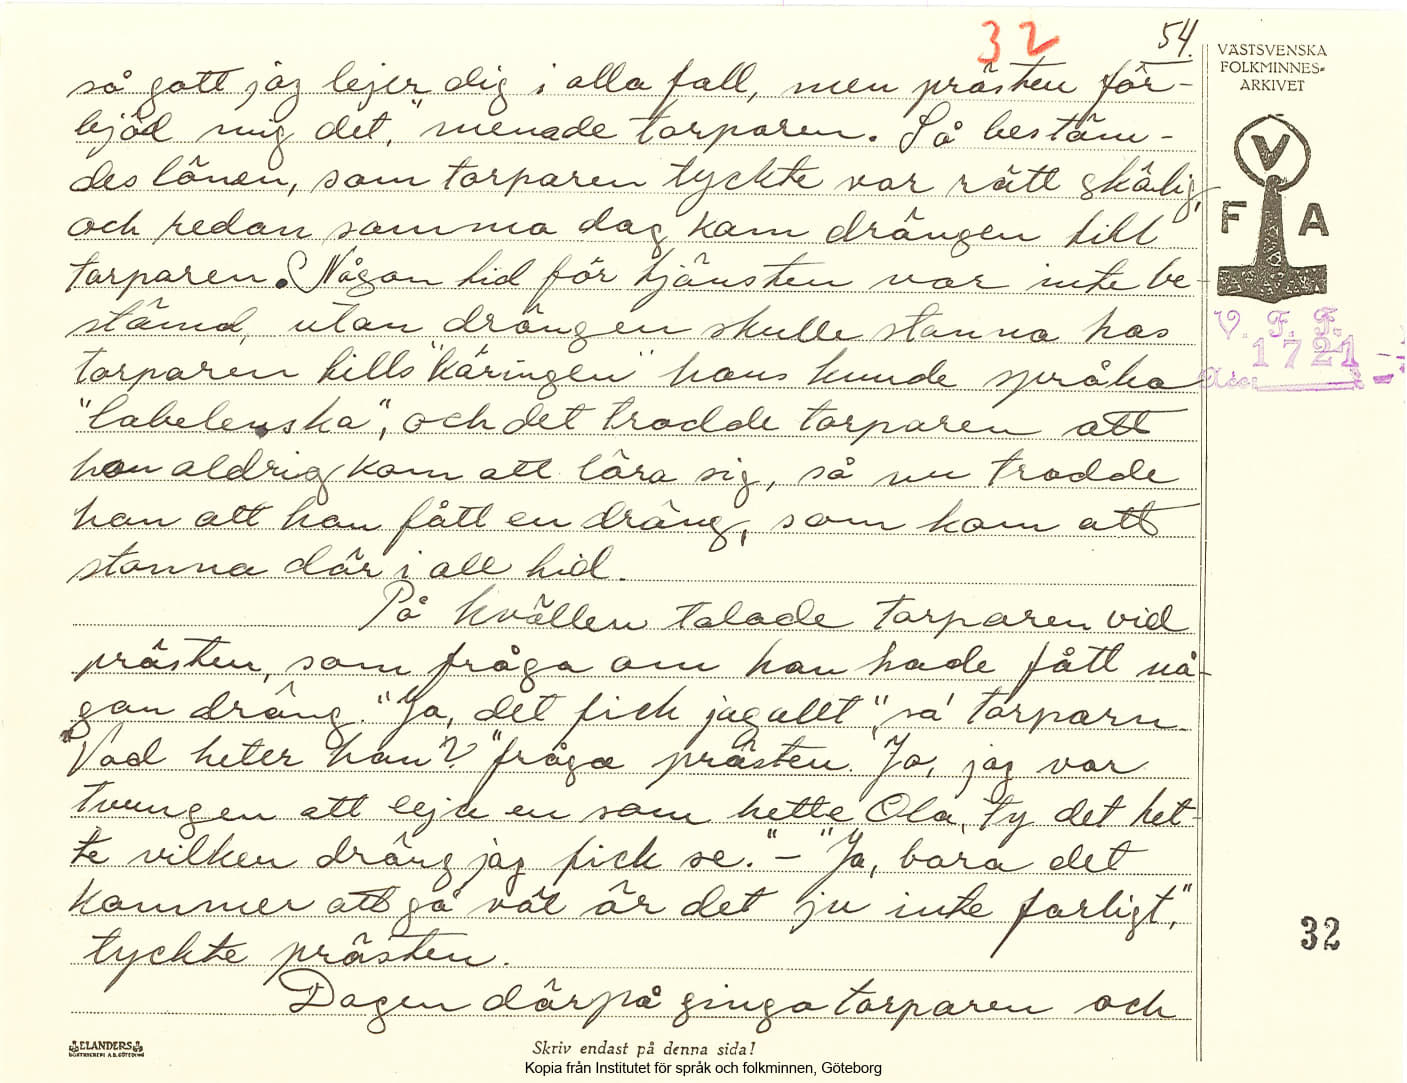 32
54.
VÄSTSVENSKA
FOLKMINNES-
ARKIVET
V
F A
V. F. F.
1721
så gott jag lejer dig i alla fall, men prästen för-
bjöd mig det," menade torparen. Så bestäm-
des lönen, som torparen tyckte var rätt skälig,
och redan samma dag kom drängen till
torparen. Någon tid för tjänsten var inte be-
stämd, utan drängen skulle stanna hos
torparen tills "käringen" hans kunde språka
"labelenska", och det trodde torparen att
hon aldrig kom att lära sig, så nu trodde
han att han fått en dräng, som kom att
stanna där i all tid.
På kvällen talade torparen vid
prästen, som fråga om han hade fått nå-
gon dräng. "Ja, det fick jag allt", sa' torparn.
"Vad heter han?" fråga prästen. "Ja, jag var
tvungen att leja en som hette Ola, ty det het-
te vilken dräng jag fick se." – "Ja, bara det
kommer att gå väl är det ju inte farligt,"
tyckte prästen.
Dagen därpå ginga torparen och
32
ELANDERS
Skriv endast på denna sida!
Kopia från Institutet för språk och folkminnen, Göteborg